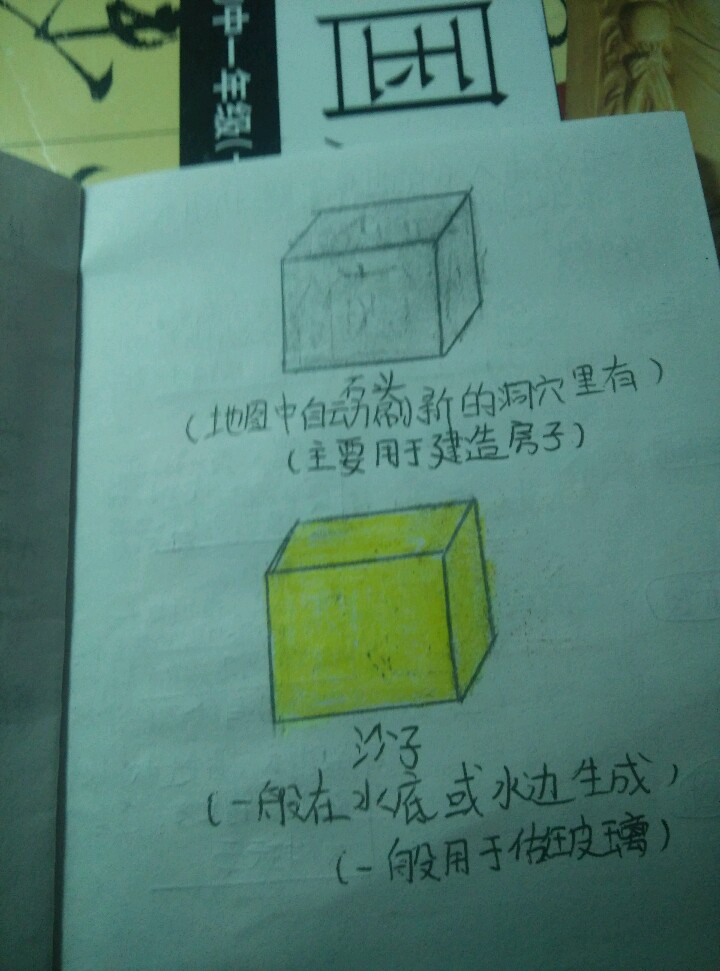 石头
(地图中自动刷新的洞穴里有)
(主要用于建造房子)
沙子
(一般在水底或水边生成)
(一般用于做玻璃)